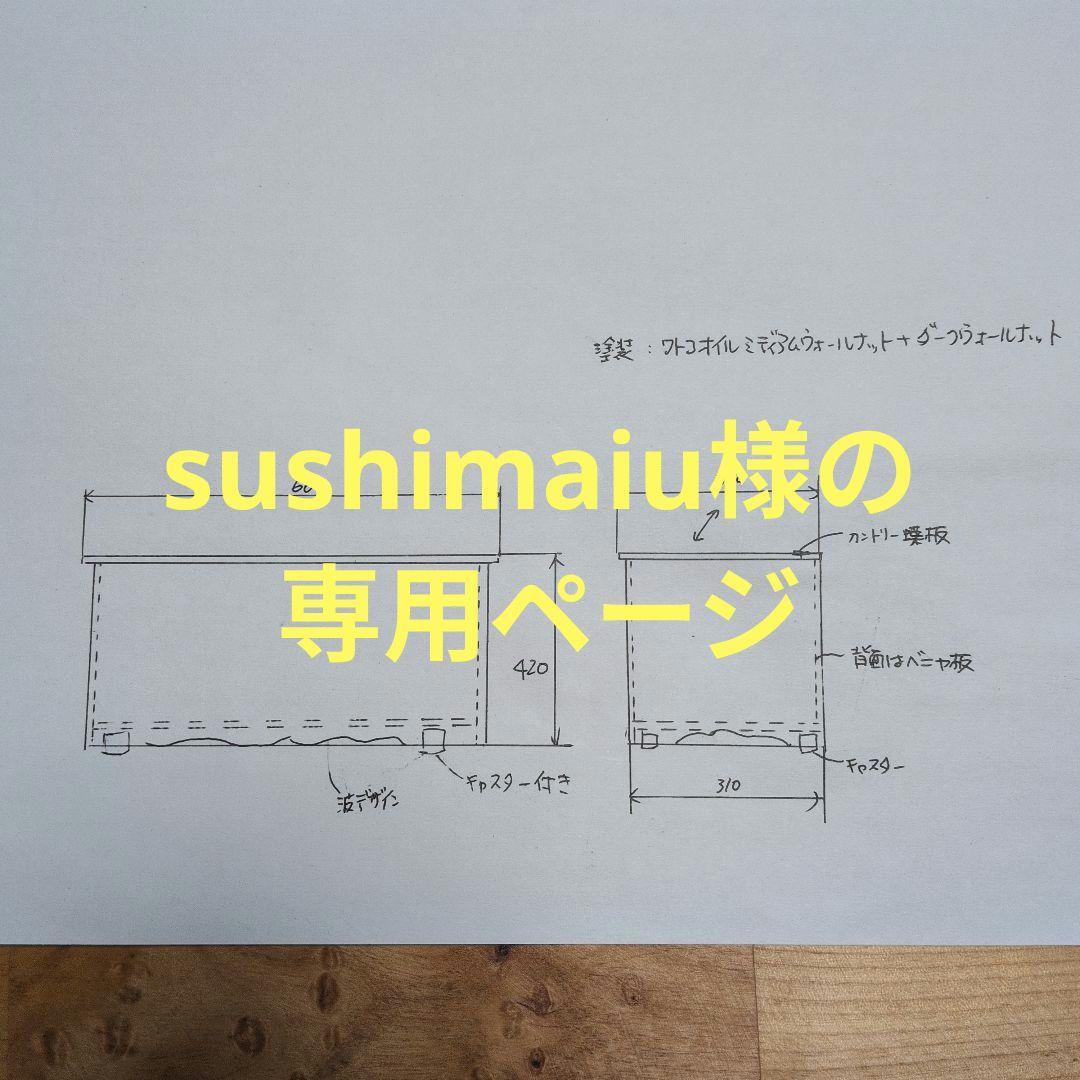 塗装：ワトコオイルミディアムウォールナット+ダークウォールナット
sushimaiu様の
専用ページ
カントリー蝶板
420
背面はベニヤ板
キャスター付き
波デザイン
キャスター
310